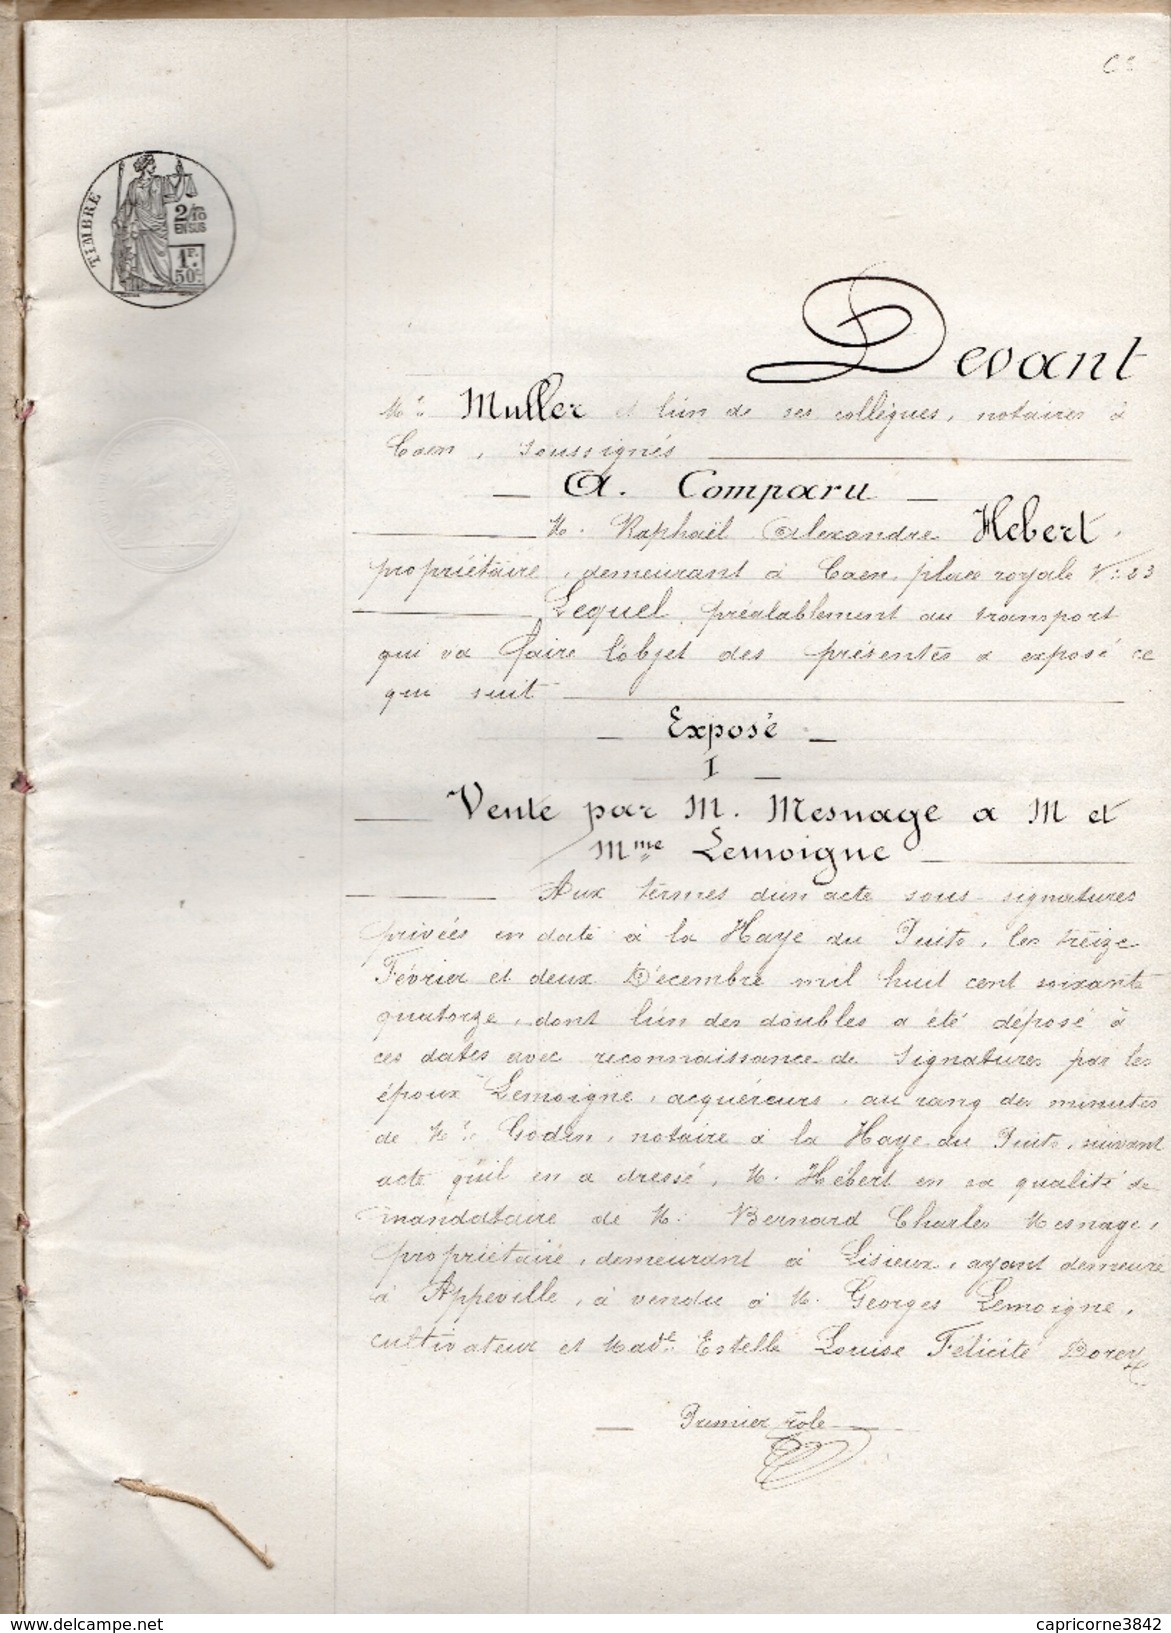 TIMBRE
2/10
EN SUS
1F.
50c.
Devant
Me Muller et l'un de ses collègues, notaires à
Caen, soussignés
A. Comparu
M. Raphaël Alexandre Hebert,
propriétaire, demeurant à Caen, place royale N: 23
Lequel, préalablement au transport
qui va faire l'objet des présentes a exposé ce
qui suit
Exposé
I
Vente par M. Mesnage a M et
Mme Lemoigne
Aux termes d'un acte sous signatures
privées en date à la Haye du Puits, les treize
Février et deux Décembre mil huit cent soixante
quatorze, dont l'un des doubles a été déposé à
ces dates avec reconnaissance de signatures par les
époux Lemoigne, acquéreurs, au rang des minutes
de Me Godin, notaire à la Haye du Puits, suivant
acte qu'il en a dressé, M. Hébert en sa qualité de
mandataire de M. Bernard Charles Mesnage,
propriétaire, demeurant à Lisieux, ayant demeuré
à Appeville, à vendu à M. Georges Lemoigne,
cultivateur et Made Estelle Louise Félicité Dorey
Premier rôle
capricorne3842